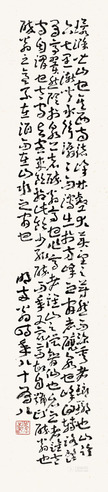 環滁皆山也其西南諸峰林壑尤美望之蔚然而深秀者瑯琊也山行
六七里漸聞水聲潺潺而瀉出於兩峰之間者釀泉也峰回路轉
有亭翼然臨於泉上者醉翁亭也作亭者誰山之僧智仙也名之者誰太
守自謂也太守與客來飲於此飲少輒醉而年又最高故自號曰醉翁也
醉翁之意不在酒在乎山水之間也
時年八十有八